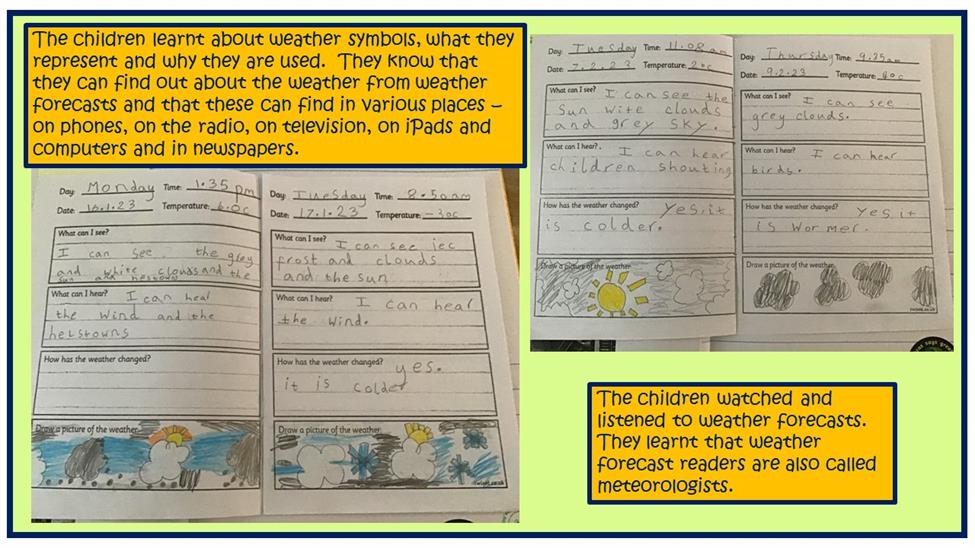 The children learnt about weather symbols, what they
represent and why they are used.  They know that
they can find out about the weather from weather
forecasts and that these can find in various places –
on phones, on the radio, on television, on iPads and
computers and in newspapers.
Day: Monday Time: 1.35 pm
Date: 16.1.23 Temperature: 6.0c
What can I see?
I can see the grey
and white clouds and the
sun and hestowns
What can I hear? I can heal
the wind and the
helstowns
How has the weather changed?
Draw a picture of the weather
Day: Tuesday Time: 8.50am
Date: 17.1.23 Temperature: -30c
What can I see? I can see iec
frost and clouds
and the sun
What can I hear? I can heal
the wind.
How has the weather changed? yes.
it is colder
Draw a picture of the weather
Day: Tuesday Time: 11.08 am
Date: 7.2.23 Temperature: 20c
What can I see? I can see the
Sun wite clouds
and grey sky.
What can I hear? I can hear
children shouting
How has the weather changed? Yes,it
is colder.
Draw a picture of the weather
Day: Thursday Time: 9.35am
Date: 9.2.23 Temperature: 40c
What can I see? I can see
grey clouds.
What can I hear? I can hear
birds.
How has the weather changed? Yes it
is wormer.
Draw a picture of the weather
twinkl.co.uk
The children watched and
listened to weather forecasts.
They learnt that weather
forecast readers are also called
meteorologists.